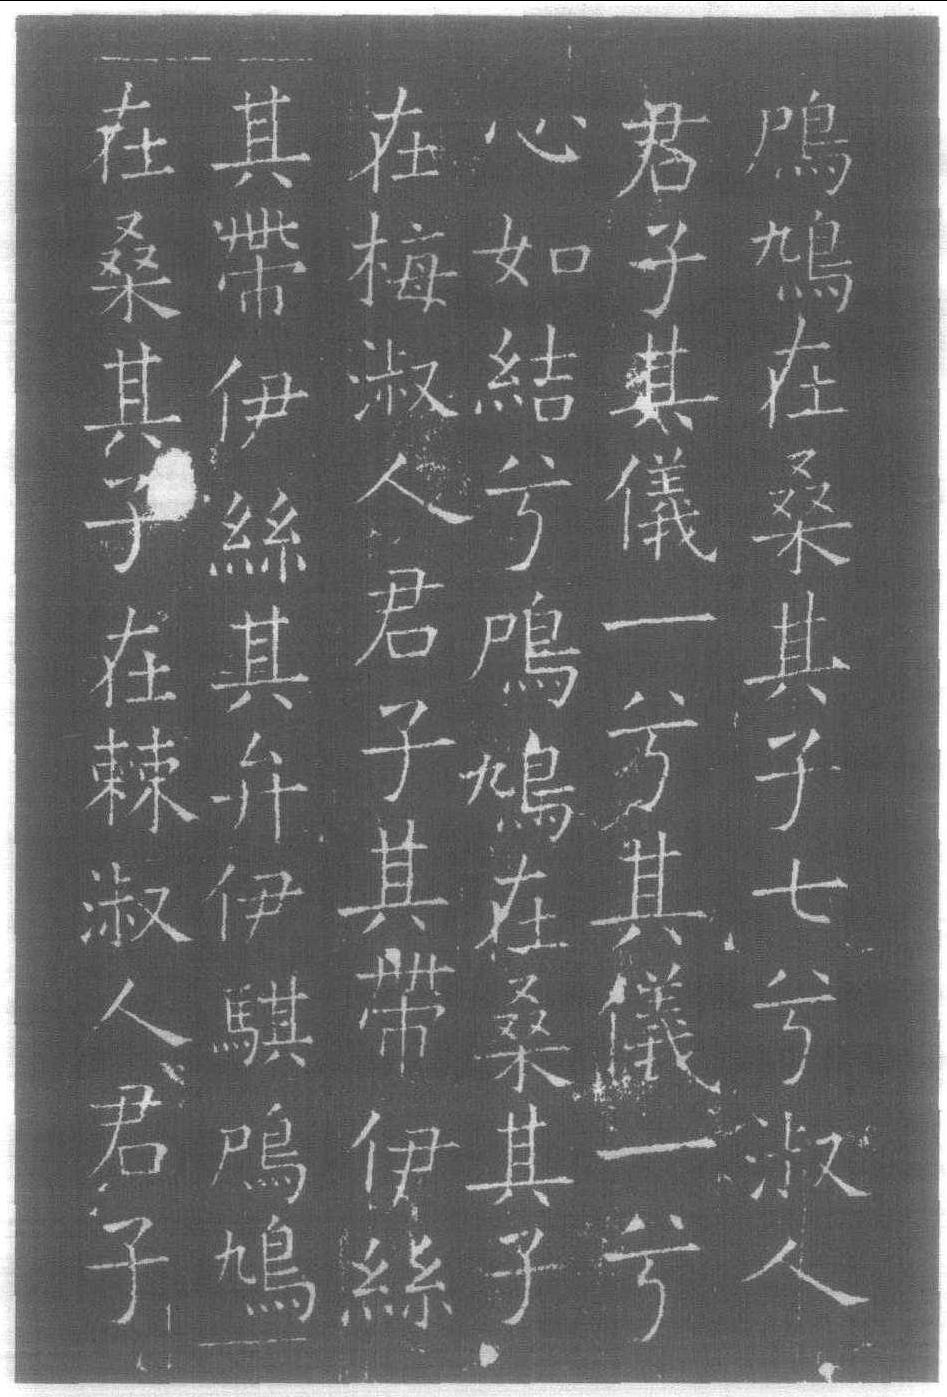 鳲鳩在桑其子七兮淑人
君子其儀一兮其儀一兮
心如結兮鳲鳩在桑其子
在梅淑人君子其帶伊絲
其帶伊絲其弁伊騏鳲鳩
在桑其子在棘淑人君子